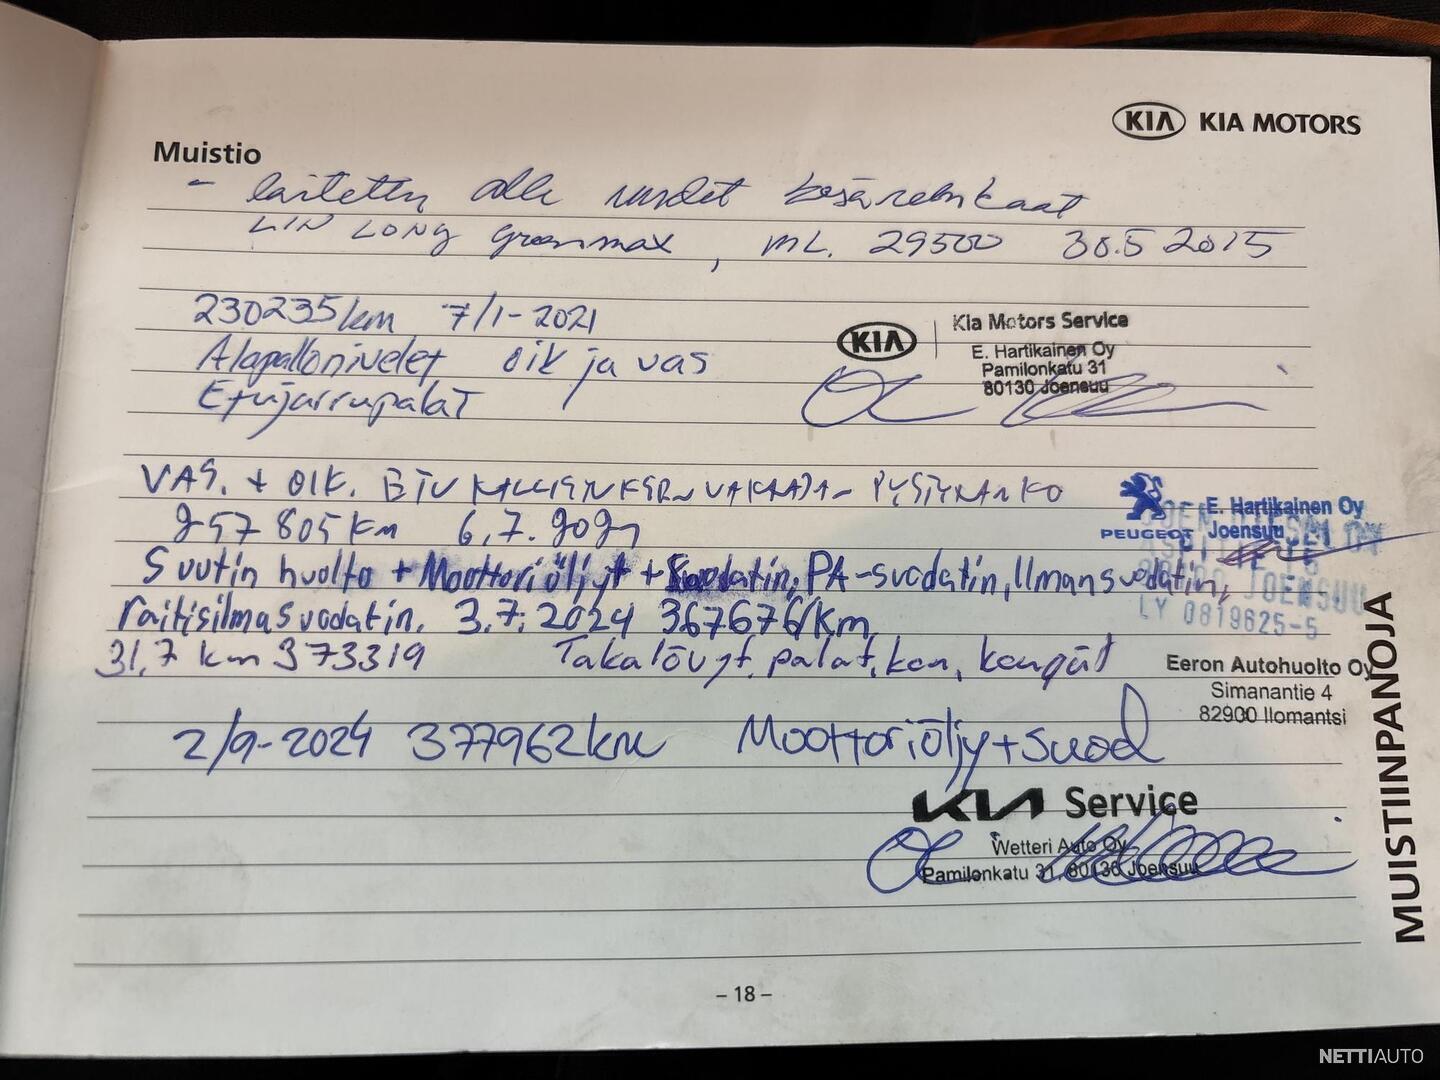 KIA KIA MOTORS
Muistio
- laitettu alle uudet kesärenkaat
LIN LONG greenmax, ML. 29500 30.5 2015
230235km 7/1-2021
Alapallonivelet oik ja vas
Etujarrupalat
KIA Kia Motors Service
E. Hartikainen Oy
Pamilonkatu 31
80130 Joensuu
VAS. + OIK. ETU
257 805 km 6,7.
PEUGEOT E. Hartikainen Oy
Joensuu
JOENSUU
LY 0819625-5
Suutin huolto + Moottoriöljyt + Suodatin, PA-suodatin, Ilmansuodatin,
raitisilmasuodatin. 3.7.2024 367676/Km
31,7 km 373319 Takalöyt. palat, ken, kengät
Eeron Autohuolto Oy
Simanantie 4
82900 Ilomantsi
2/9-2024 377962km Moottoriöljy+suod
KIA Service
Wetteri Auto Oy
Pamilonkatu 31, 80130 Joensuu
MUISTIINPANOJA
– 18 –
NETTIAUTO